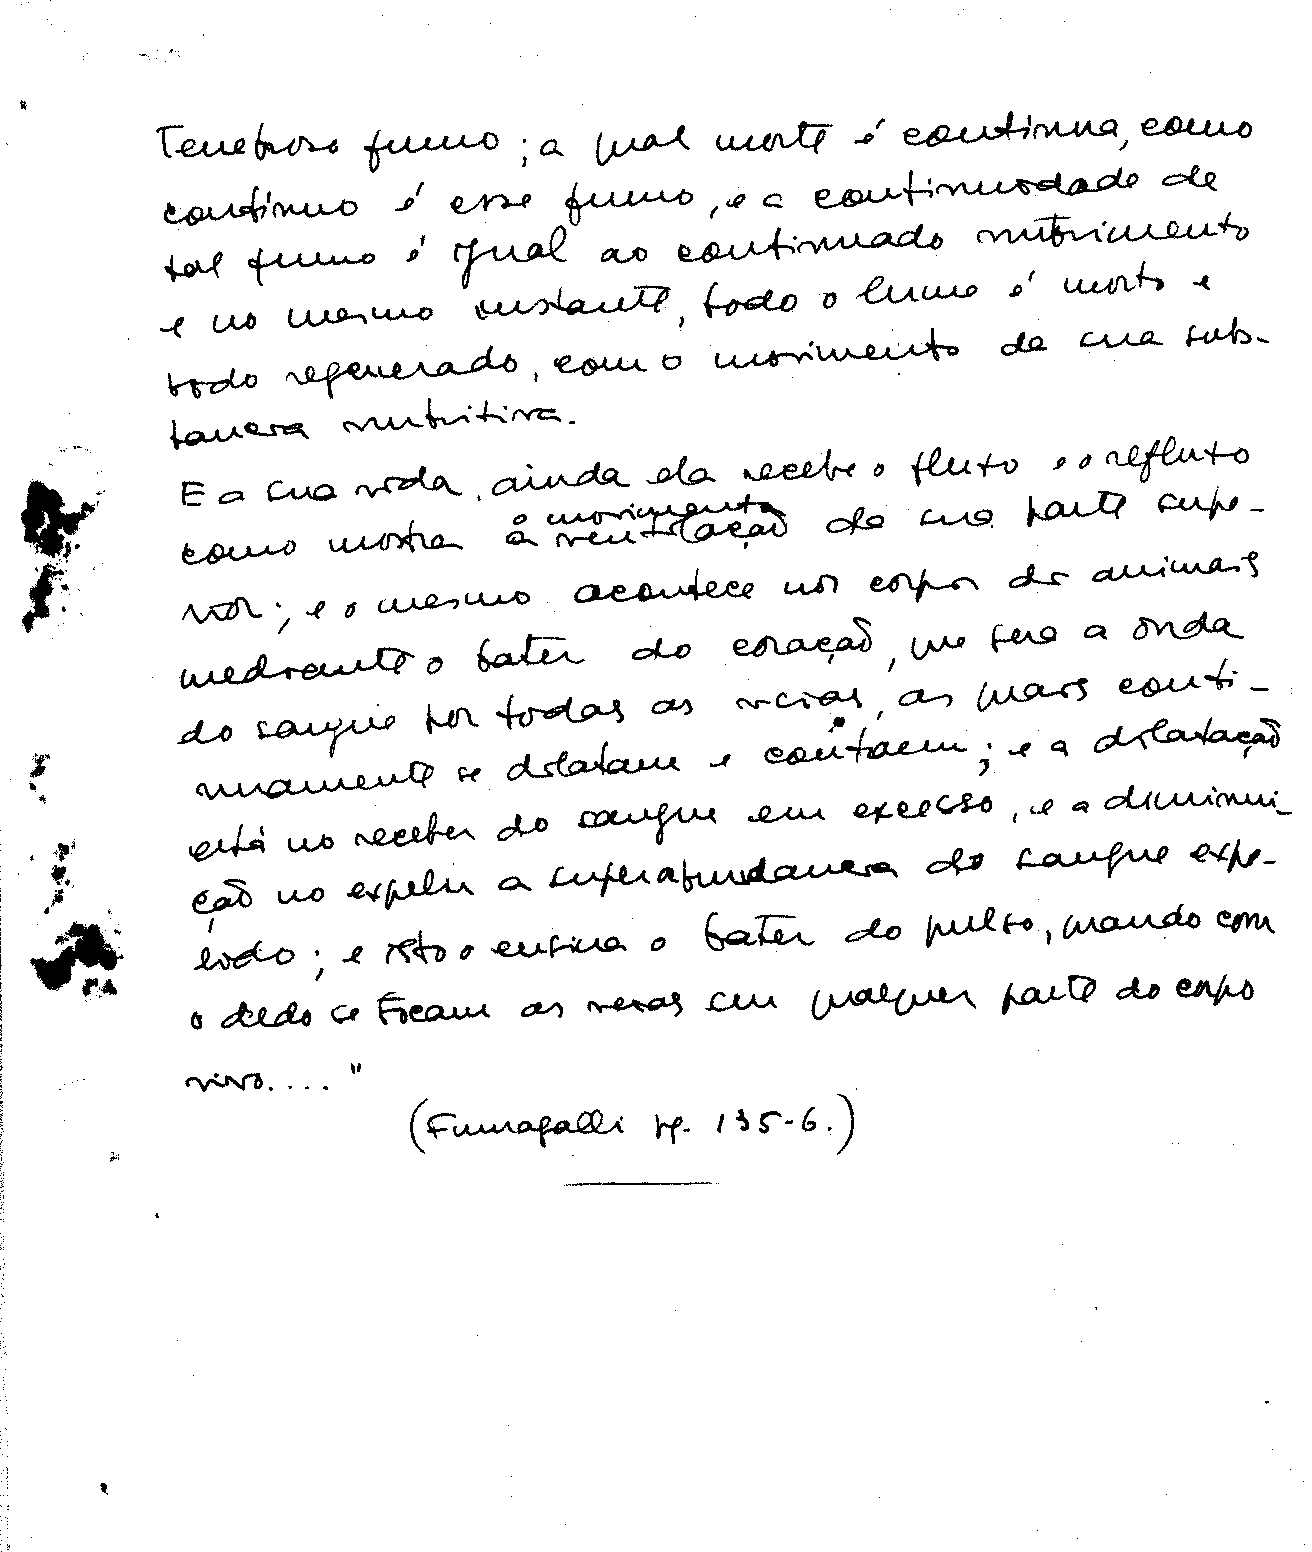 Tenebroso fumo; a qual morte é contínua, como
contínuo é esse fumo, e a continuidade de
tal fumo é igual ao continuado nutrimento
e no mesmo instante, todo o lume é morto e
todo regenerado, com o movimento da sua subs-
tancia nutritiva.
E a sua vida, ainda ela recebe o fluxo e o refluxo
o movimento
como mostra a ventilação da sua parte supe-
rior; e o mesmo acontece nos corpos dos animais
mediante o bater do coração, que gera a onda
do sangue por todas as veias, as quais conti-
nuamente se dilatam e contraem; e a dilatação
está no receber do sangue em excesso, e a diminui-
ção no expelir a superabundancia do sangue expe-
lido; e isto o ensina o bater do pulso, quando com
o dedo se tocam as veias em qualquer parte do corpo
vivo...."
(Fumagalli pg. 135-6.)